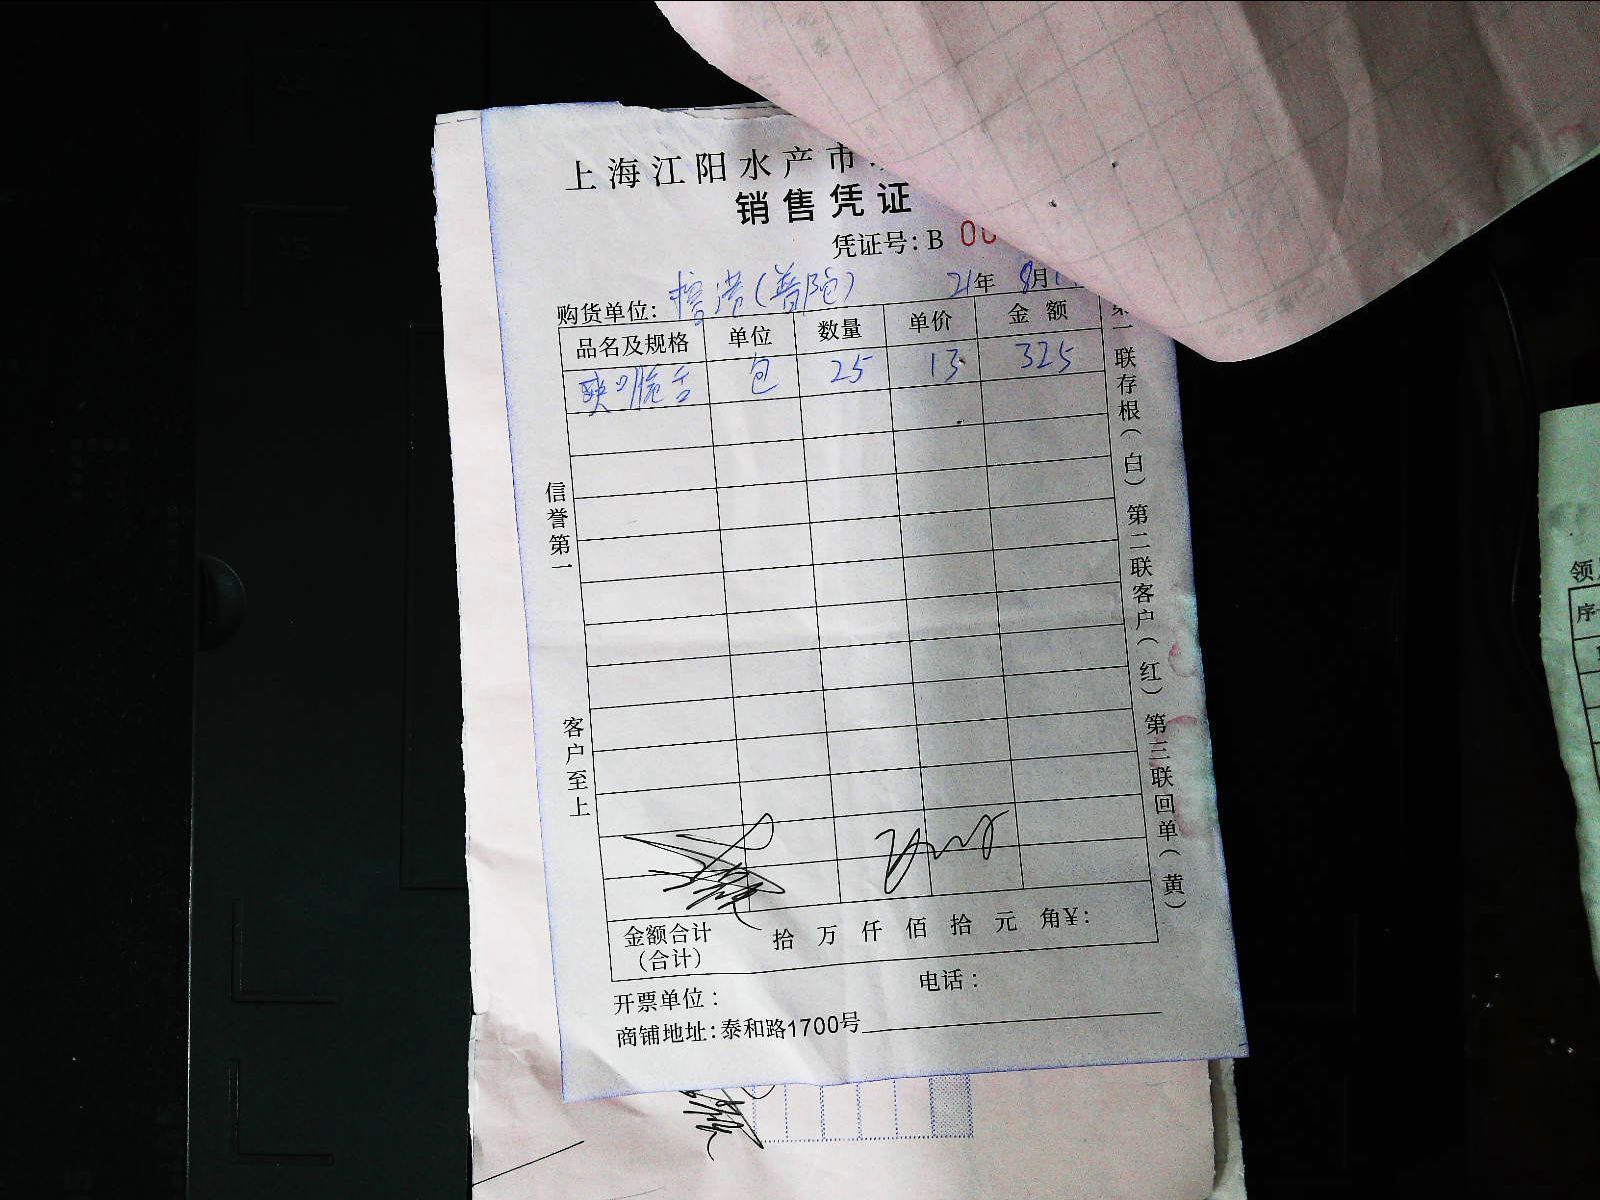 上海江阳水产市
销售凭证
凭证号: B 00
购货单位: 檀港(普陀) 21年 8月
品名及规格 单位 数量 单价 金额
包 25 13 325
信誉第一
客户至上
第一联存根(白) 第二联客户(红) 第三联回单(黄)
金额合计 拾 万 仟 佰 拾 元 角¥:
(合计)
开票单位: 电话:
商铺地址: 泰和路1700号
领
序